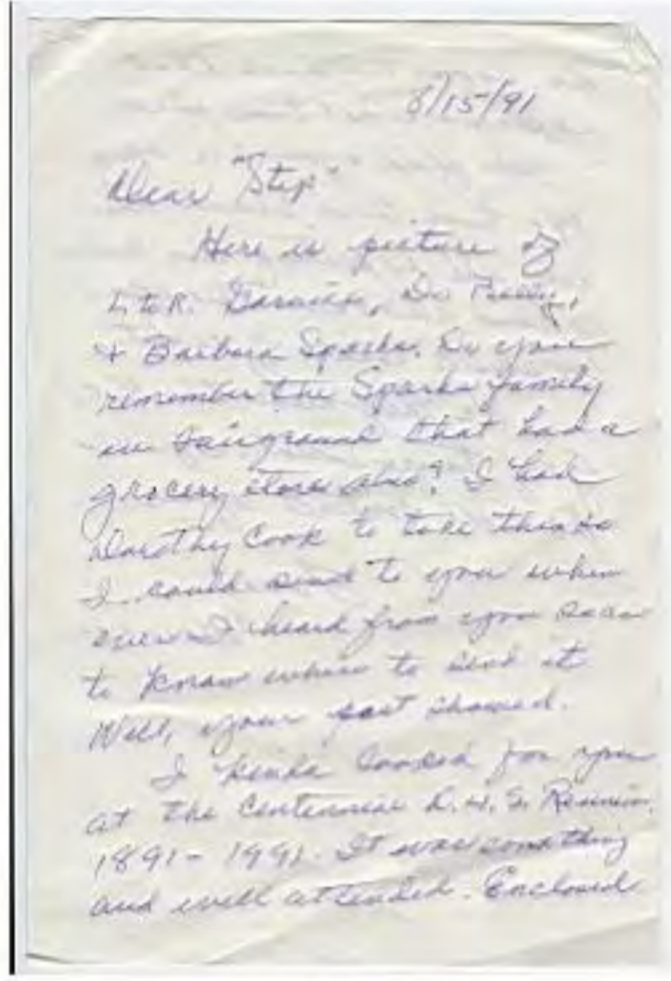 8/15/91
Dear "Step"
Here is picture of
L to R. Dr. Billy,
+ Barbara Sparks. Do you
remember the Sparks family
in Fairground that had a
grocery store also? I had
Dorothy Cook to take this so
I could send to you when
ever I heard from you so as
to know where to send it
Well, your card showed.
I kinda looked for you
at the Centennial D.H.S. Reunion.
1891-1991. It was something
and well attended. Enclosed